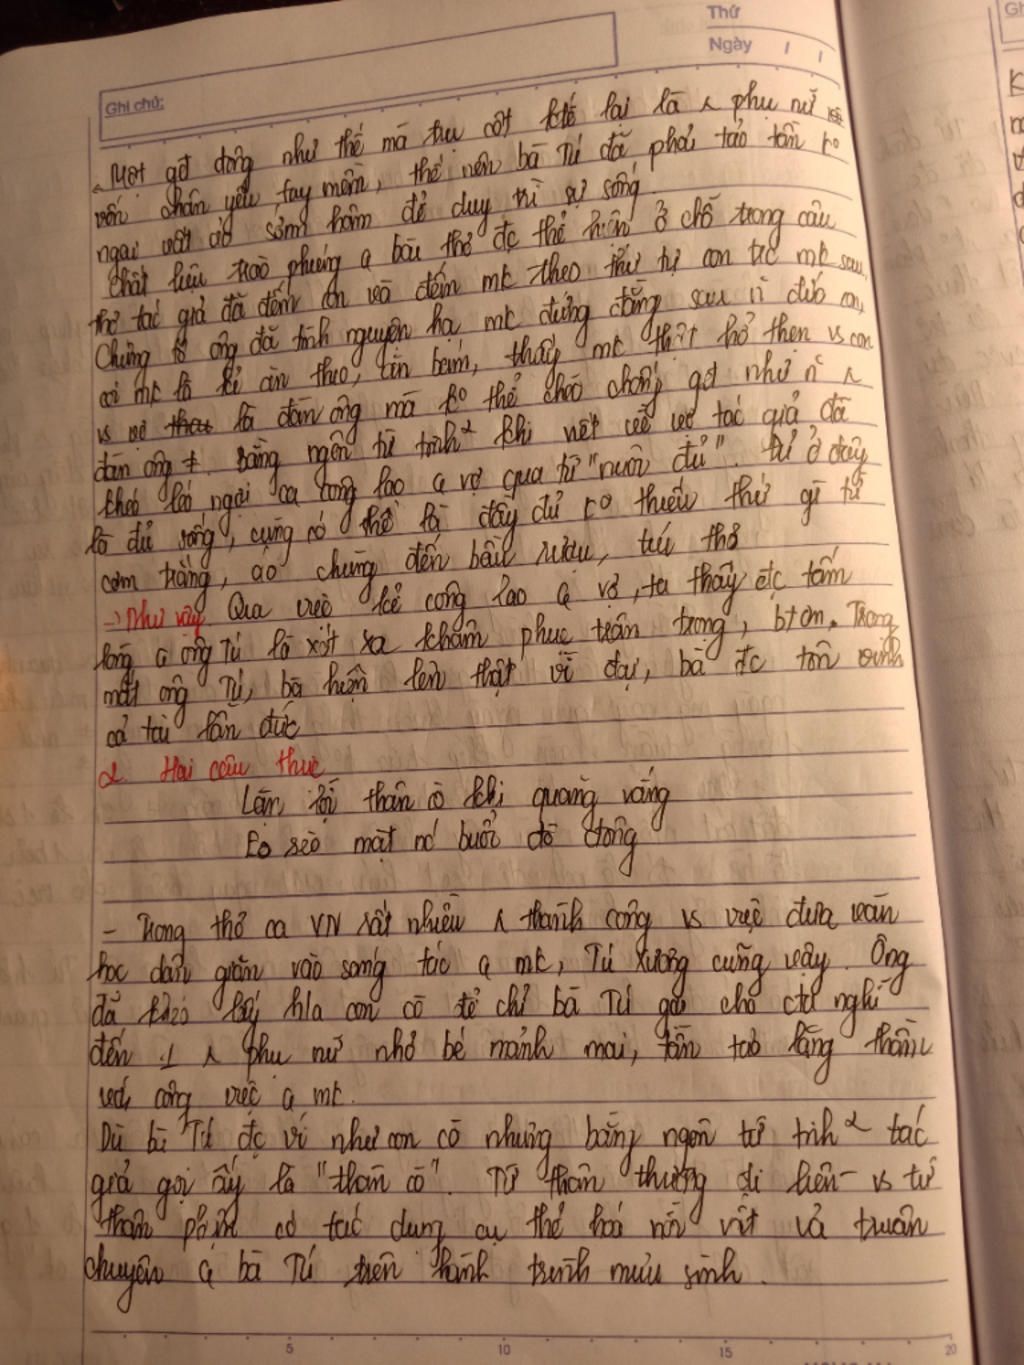 Thứ
Ngày / /
Ghi chú:
Một gđ đông như thế mà trụ cột ktế lại là 1 phụ nữ
vốn chân yếu tay mềm, thế nên bà Tú đã phải tảo tần ko
ngại vất vả sớm hôm để duy trì sự sống.
Chất liệu trào phúng ạ bài thơ đc thể hiện ở chỗ trong câu
thơ tác giả đã đếm con và đếm mk theo thứ tự con trc mk sau
Chứng tỏ ông đã tình nguyện hạ mk đứng đằng sau đứa con,
coi mk là kẻ ăn theo, ăn bám, thấy mk thật hổ thẹn vs con
vs vợ là đàn ông mà ko thể chèo chống gđ như n 1
đàn ông ≠. Bằng ngôn từ tinh² khi viết về vợ tác giả đã
khéo léo ngợi ca công lao ạ vợ qua từ "nuôi đủ". Đủ ở đây
là đủ sống, cũng có thể là đầy đủ ko thiếu thứ gì từ
cơm trắng, áo chùng đến bầu rượu, túi thơ
→ Như vậy Qua việc kể công lao ạ vợ, ta thấy đc tấm
lòng ạ ông Tú là xót xa khâm phục trân trọng, bt ơn. Trong
mắt ông Tú, bà hiện lên thật vĩ đại, bà đc tôn vinh
cả tài lẫn đức
2. Hai câu thực
Lặn lội thân cò khi quãng vắng
Eo sèo mặt nc buổi đò đông
- Trong thơ ca VN rất nhiều 1 thành công vs việc đưa văn
học dân gian vào sáng tác ạ mk, Tú Xương cũng vậy. Ông
đã khéo lấy h/a con cò để chỉ bà Tú gợi cho cta nghĩ
đến 1 phụ nữ nhỏ bé mảnh mai, tần tảo lặng thầm
với công việc ạ mk.
Dù bà Tú đc ví như con cò nhưng bằng ngôn từ tinh² tác
giả gọi ấy là "thân cò". Từ thân thường đi liền vs từ
thân phận có tác dụng cụ thể hoá nỗi vất vả truân
chuyên ạ bà Tú trên hành trình mưu sinh.
5 10 15 20